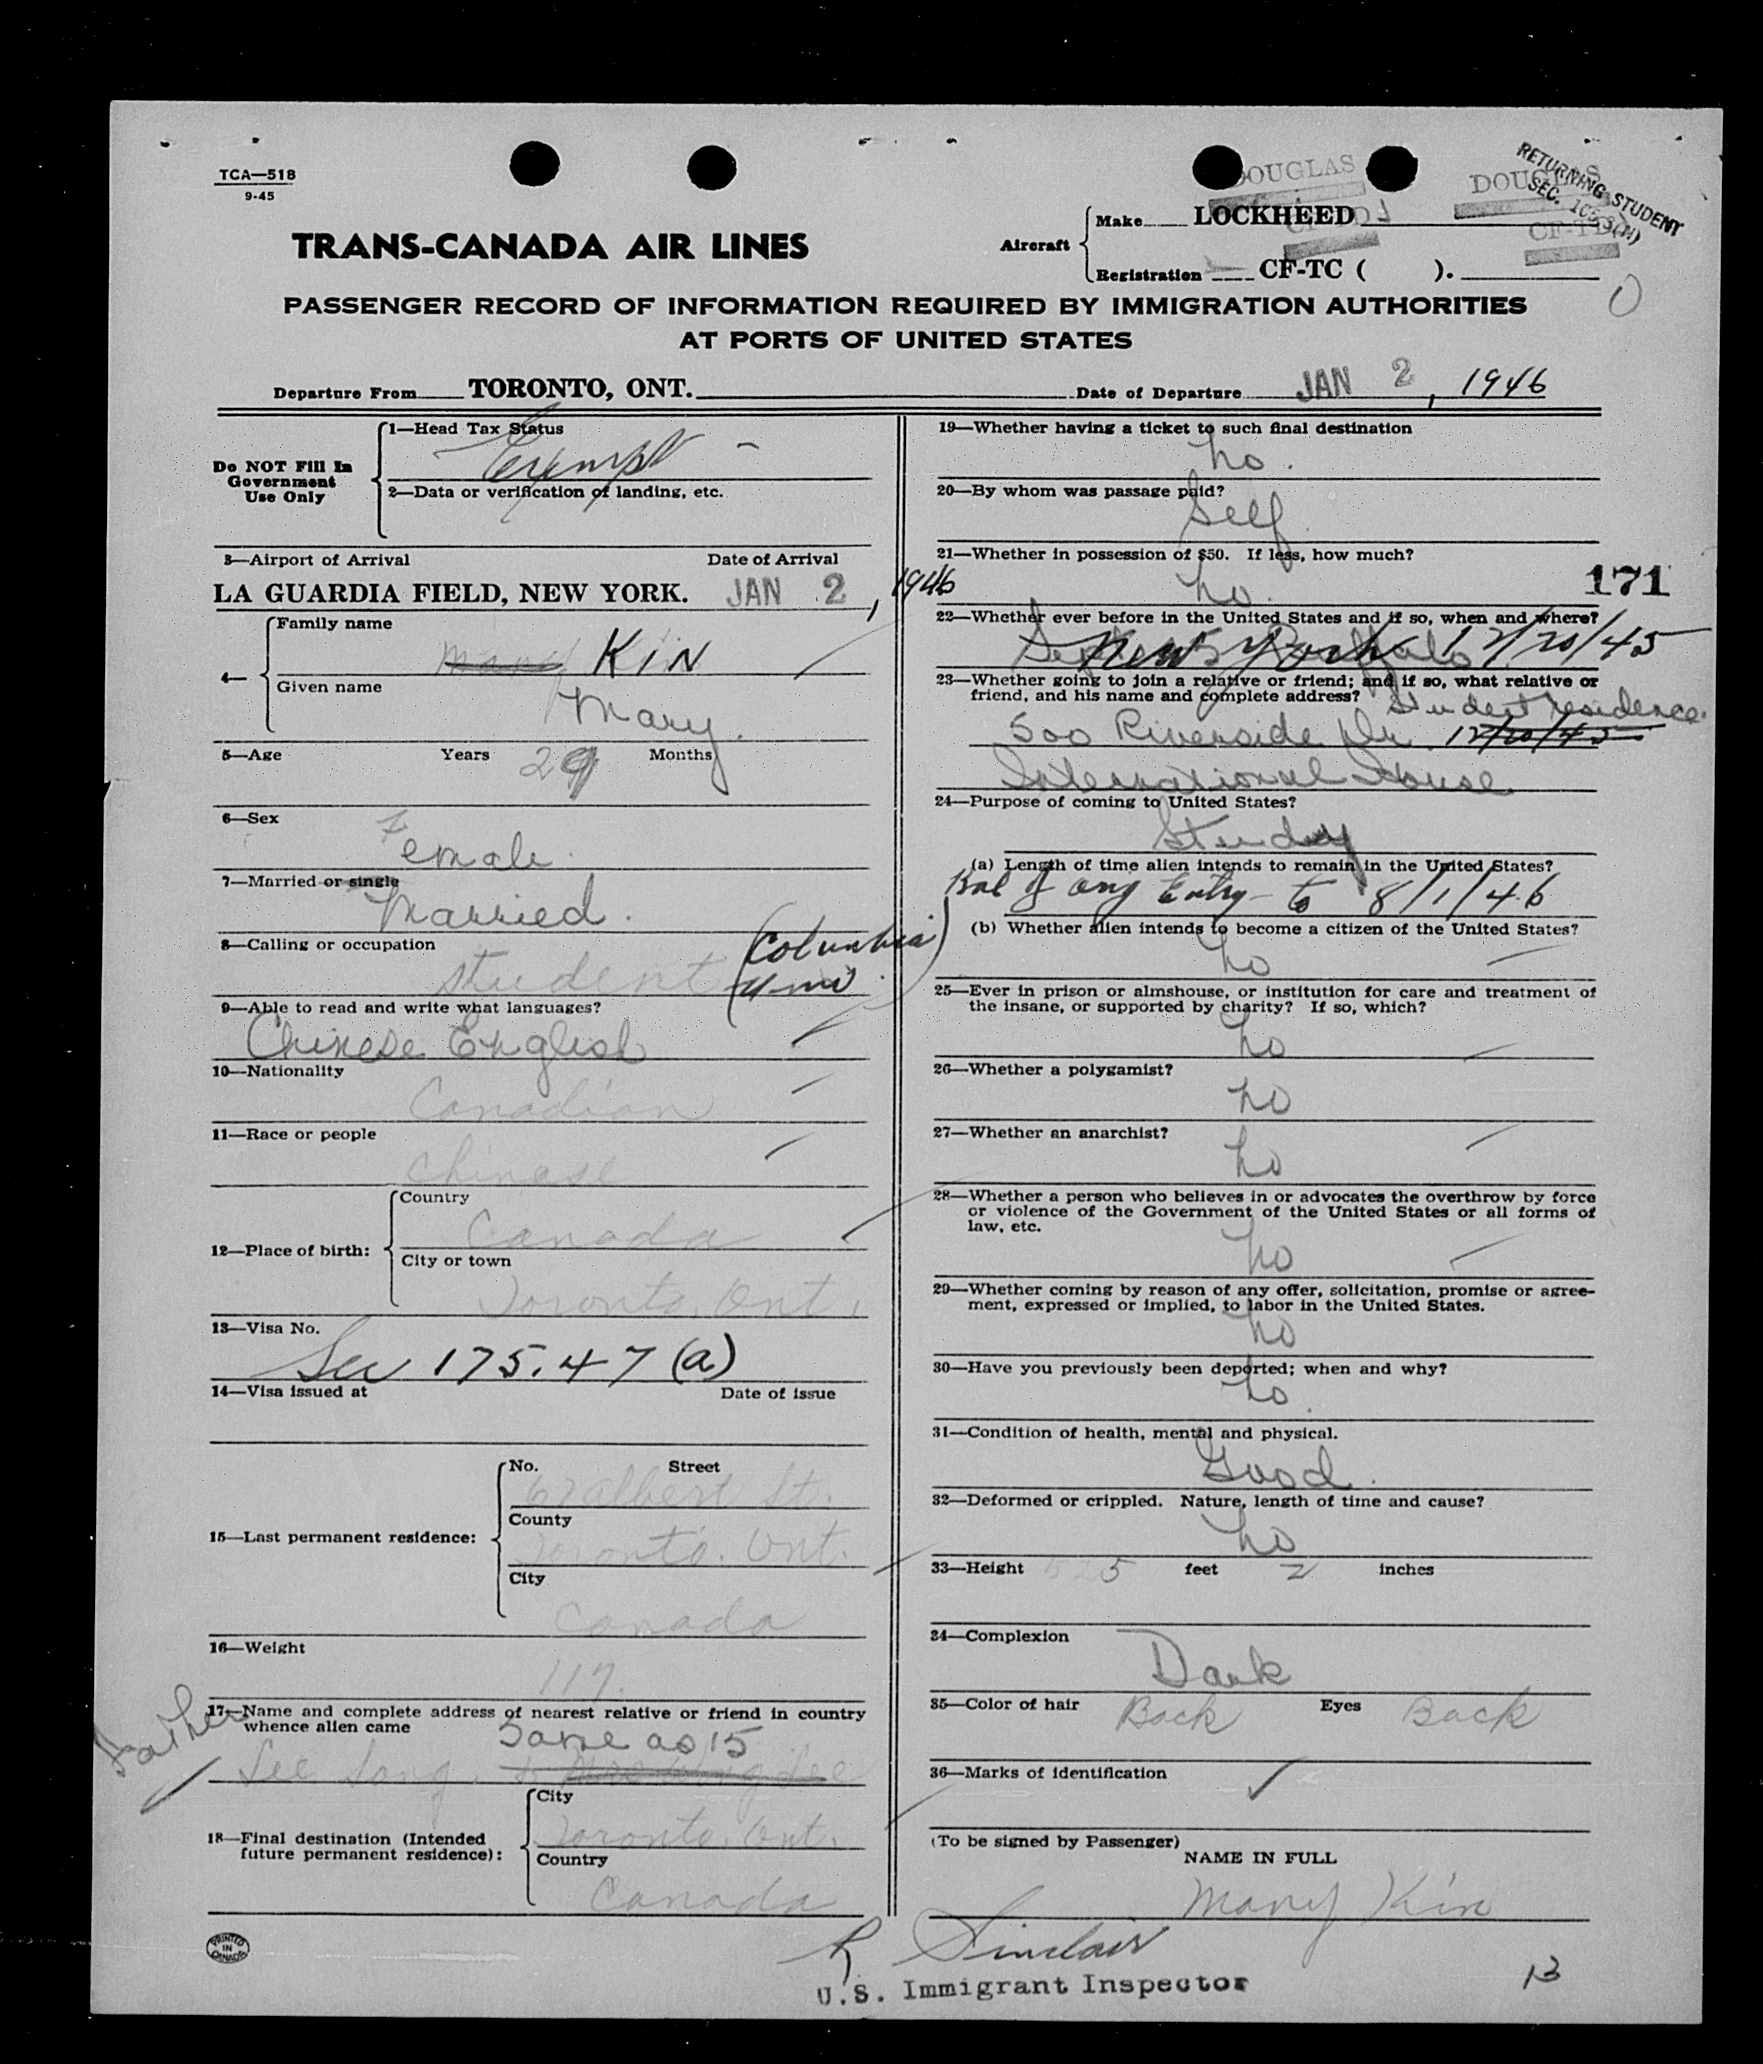 TCA—518
9-45
DOUGLAS
DOUGLAS
RETURNING STUDENT
SEC.
TRANS-CANADA AIR LINES
Aircraft
Make LOCKHEED
Registration CF-TC ( ).
CF-TD
PASSENGER RECORD OF INFORMATION REQUIRED BY IMMIGRATION AUTHORITIES
AT PORTS OF UNITED STATES
Departure From TORONTO, ONT. Date of Departure JAN 2, 1946
Do NOT Fill In
Government
Use Only
1—Head Tax Status
Exempt
2—Data or verification of landing, etc.
3—Airport of Arrival Date of Arrival
LA GUARDIA FIELD, NEW YORK. JAN 2, 1946
4—
Family name
Mary KIN
Given name
Mary.
5—Age Years 29 Months
6—Sex
Female.
7—Married or single
Married.
8—Calling or occupation
student (Columbia
Univ.)
9—Able to read and write what languages?
Chinese English
10—Nationality
Canadian
11—Race or people
Chinese
12—Place of birth:
Country
Canada
City or town
Toronto, Ont.
13—Visa No.
Sec 175.47 (a)
14—Visa issued at Date of issue
15—Last permanent residence:
No. Street
67 Albert St.
County
Toronto. Ont.
City
Canada
16—Weight
117.
17—Name and complete address of nearest relative or friend in country
whence alien came
Same as 15
Father
Lee Song.
18—Final destination (Intended
future permanent residence):
City
Toronto, Ont.
Country
Canada
PRINTED
IN
CANADA
19—Whether having a ticket to such final destination
no.
20—By whom was passage paid?
Self
21—Whether in possession of $50. If less, how much?
no.
171
22—Whether ever before in the United States and if so, when and where?
New York 12/20/45
23—Whether going to join a relative or friend; and if so, what relative or
friend, and his name and complete address?
Student residence.
500 Riverside Dr. 12/20/45
International House
24—Purpose of coming to United States?
Study
(a) Length of time alien intends to remain in the United States?
Bal of orig Entry - to 8/1/46
(b) Whether alien intends to become a citizen of the United States?
no
25—Ever in prison or almshouse, or institution for care and treatment of
the insane, or supported by charity? If so, which?
no
26—Whether a polygamist?
no
27—Whether an anarchist?
no
28—Whether a person who believes in or advocates the overthrow by force
or violence of the Government of the United States or all forms of
law, etc.
no
29—Whether coming by reason of any offer, solicitation, promise or agree-
ment, expressed or implied, to labor in the United States.
no
30—Have you previously been deported; when and why?
no.
31—Condition of health, mental and physical.
Good.
32—Deformed or crippled. Nature, length of time and cause?
no
33—Height 5 feet 2 inches
34—Complexion
Dark
35—Color of hair Back Eyes Back
36—Marks of identification
(To be signed by Passenger)
NAME IN FULL
Mary Kin
R Sinclair
U.S. Immigrant Inspector
13